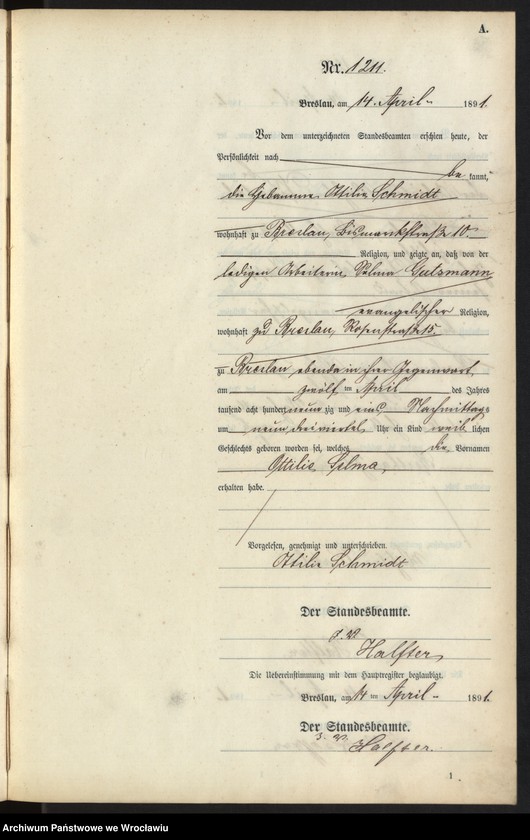 A.
Nr. 1211.
Breslau, am 14. April 1891.
Vor dem unterzeichneten Standesbeamten erschien heute, der
Persönlichkeit nach
bekannt,
die Hebamme Ottilie Schmidt
wohnhaft zu Breslau, Bismarckstraße 10.
Religion, und zeigte an, daß von der
ledigen Arbeiterin Selma Gutsmann
evangelischer Religion,
wohnhaft zu Breslau, Rosenstraße 15.
zu Breslau ebenda in ihrer Gegenwart,
am zwölf ten April des Jahres
tausend acht hundert neun zig und eins Nachmittags
um neun dreiviertel Uhr ein Kind weib lichen
Geschlechts geboren worden sei, welches die Vornamen
Ottilie Selma,
erhalten habe.
Vorgelesen, genehmigt und unterschrieben
Ottilie Schmidt
Der Standesbeamte.
J. V.
Halfter
Die Uebereinstimmung mit dem Hauptregister beglaubigt.
Breslau, am 14 ten April 1891.
Der Standesbeamte.
J. V.
Halfter.
1
Archiwum Państwowe we Wrocławiu